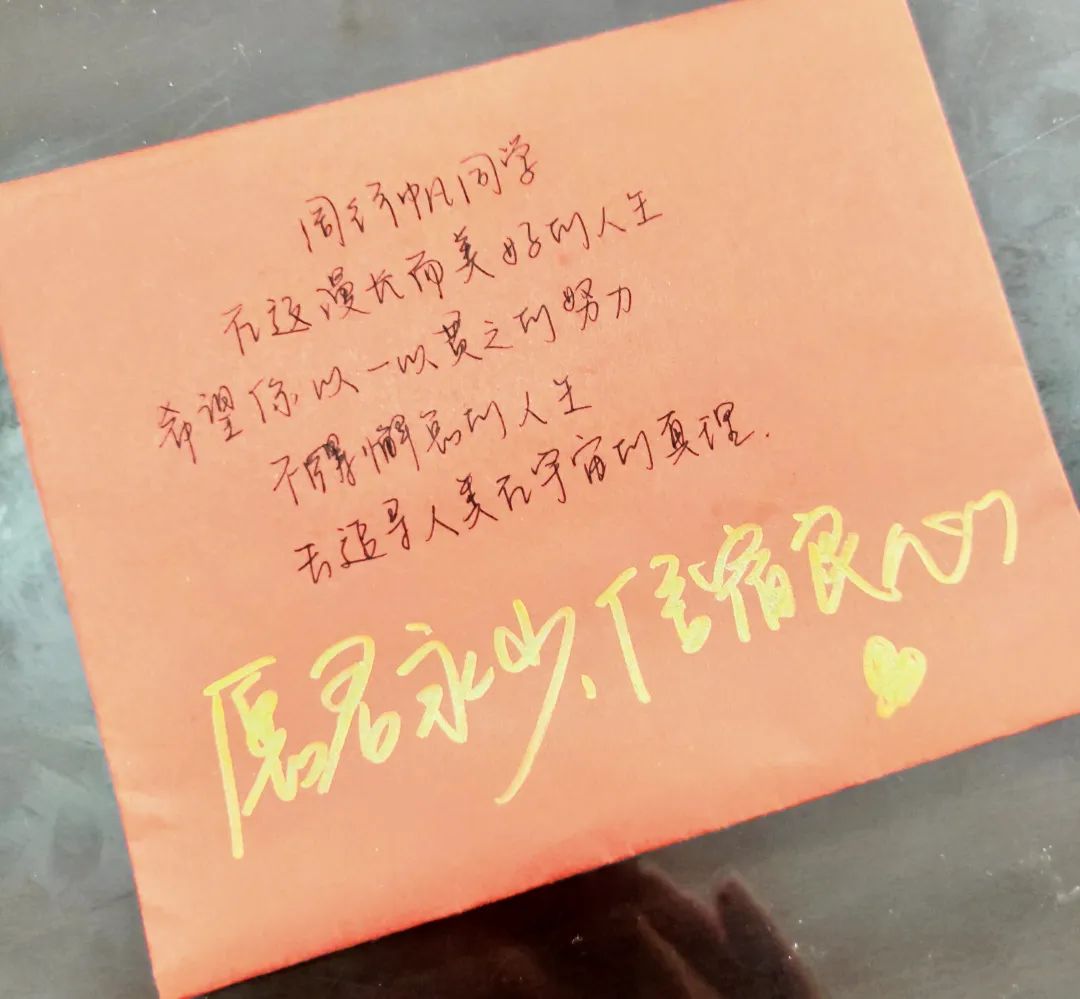 周行帆同学
在这漫长而美好的人生
希望你以一以贯之的努力
不得懈怠的人生
去追寻人类在宇宙的真理.
愿君永少、信宿良心